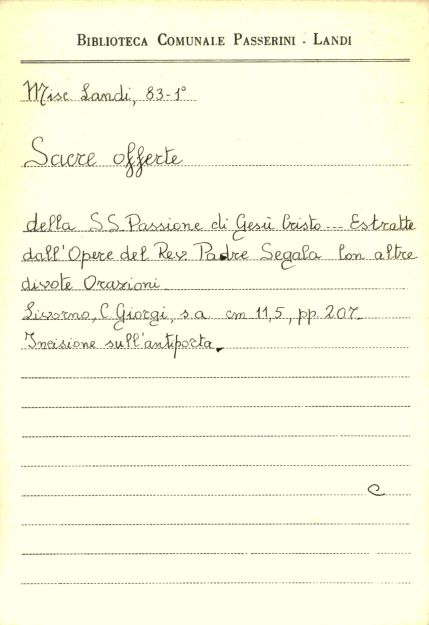 BIBLIOTECA COMUNALE PASSERINI - LANDI
Misc. Landi, 83-1°
Sacre offerte
della SS. Passione di Gesù Cristo ... Estratte
dall'Opere del Rev. Padre Segala Con altre
divote Orazioni.
Livorno, C. Giorgi, s.a. cm. 11,5, pp. 207.
Incisione sull'antiporta.
C